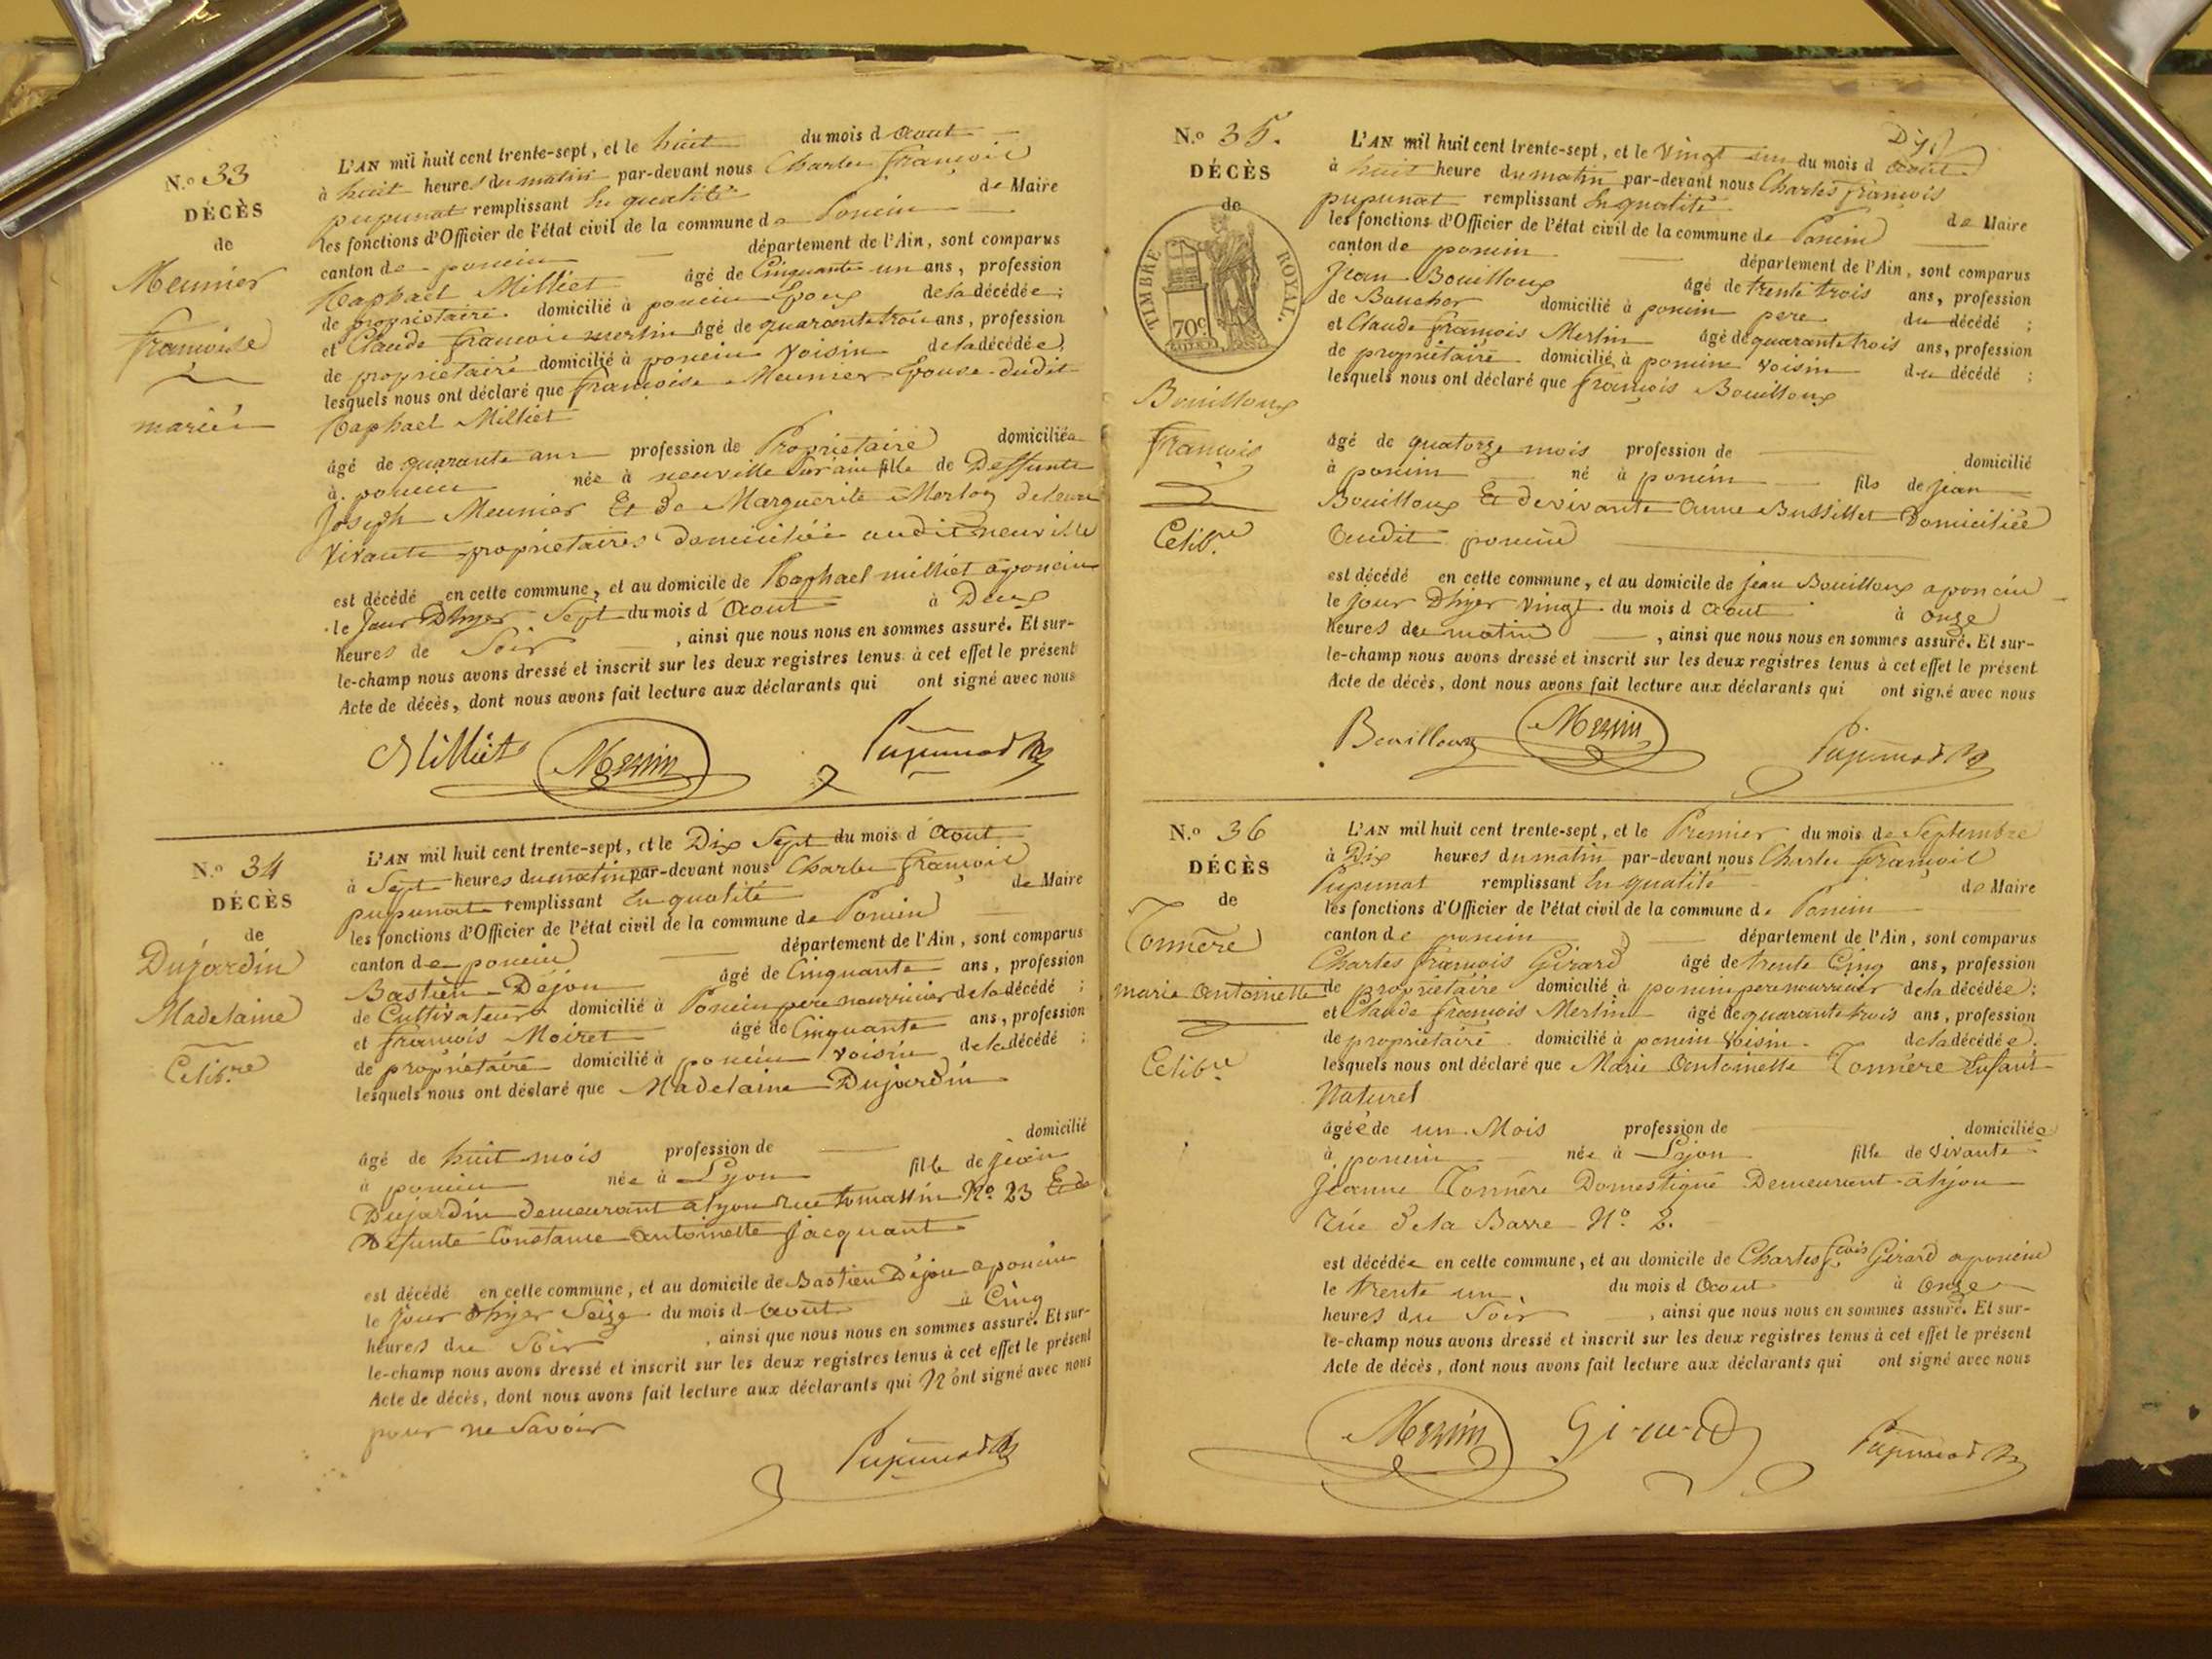 N.o 33
DÉCÈS
de
Meunier
françoise
mariée
L'AN mil huit cent trente-sept, et le huit du mois d aout
à huit heures du matin par-devant nous Charles françois
pupunat remplissant En qualité de Maire
les fonctions d'Officier de l'état civil de la commune de Poncin
canton de poncin département de l'Ain, sont comparus
Raphael Milliet âgé de Cinquante un ans, profession
de propriétaire domicilié à poncin Epoux de la décédée;
et Claude françois merlin âgé de quarante trois ans, profession
de propriétaire domicilié à poncin voisin de la décédée,
lesquels nous ont déclaré que françoise Meunier Epouse dudit
Raphael Milliet
âgé de quarante ans profession de Propriétaire domiciliée
à poncin née à neuville sur ain fille de Deffunte
Joseph Meunier Et de Marguerite Merloz deleur
vivante propriétaires domiciliée audit neuville
est décédé en cette commune, et au domicile de Raphael milliet a poncin
le Jour Dhyer Sept du mois d Aout à Deux
heures de Soir, ainsi que nous nous en sommes assuré. Et sur-
le-champ nous avons dressé et inscrit sur les deux registres tenus à cet effet le présent
Acte de décès, dont nous avons fait lecture aux déclarants qui ont signé avec nous
Milliet Merlin Pupunat
N.o 34
DÉCÈS
de
Dujardin
Madelaine
Celib.re
L'AN mil huit cent trente-sept, et le Dix Sept du mois d Aout
à Sept heures du matin par-devant nous Charles françois
pupunat remplissant En qualité de Maire
les fonctions d'Officier de l'état civil de la commune de Poncin
canton de poncin département de l'Ain, sont comparus
Bastien Dejou âgé de Cinquante ans, profession
de Cultivateur domicilié à Poncin pere nourricier de la décédé;
et françois Moiret âgé de Cinquante ans, profession
de propriétaire domicilié à poncin voisin de la décédé;
lesquels nous ont déclaré que Madelaine Dujardin
âgé de huit mois profession de domicilié
à poncin née à Lyon fille de Jean
Dujardin demeurant a lyon rue tomassin No. 23 Et de
Defunte Constance antoinette Jacquant
est décédé en cette commune, et au domicile de Bastien Dejou a poncin
le Jour Dhyer Seize du mois d Aout à Cinq
heures du Soir, ainsi que nous nous en sommes assuré. Et sur-
le-champ nous avons dressé et inscrit sur les deux registres tenus à cet effet le présent
Acte de décès, dont nous avons fait lecture aux déclarants qui N'ont signé avec nous
pour ne Savoir
Pupunat
N.o 35.
DÉCÈS
de
TIMBRE ROYAL.
70c
Bouilloux
François
Celib.re
L'AN mil huit cent trente-sept, et le vingt un du mois d Aout
à huit heure du matin par-devant nous Charles françois
pupunat remplissant En qualité de Maire
les fonctions d'Officier de l'état civil de la commune de Poncin
canton de poncin département de l'Ain, sont comparus
Jean Bouilloux âgé de trente trois ans, profession
de Boucher domicilié à poncin pere du décédé;
et Claude François Merlin âgé de quarante trois ans, profession
de propriétaire domicilié à poncin voisin du décédé;
lesquels nous ont déclaré que François Bouilloux
âgé de quatorze mois profession de domicilié
à poncin né à poncin fils de jean
Bouilloux Et de vivante anne Bussillet Domiciliée
Audit poncin
est décédé en cette commune, et au domicile de jean Bouilloux a poncin
le Jour Dhyer vingt du mois d Aout à onze
heures du matin, ainsi que nous nous en sommes assuré. Et sur-
le-champ nous avons dressé et inscrit sur les deux registres tenus à cet effet le présent
Acte de décès, dont nous avons fait lecture aux déclarants qui ont signé avec nous
Bouilloux Merlin Pupunat
N.o 36
DÉCÈS
de
Tonnère
marie Antoinette
Celib.re
L'AN mil huit cent trente-sept, et le Premier du mois de Septembre
à Dix heures du matin par-devant nous Charles françois
Pupunat remplissant En qualité de Maire
les fonctions d'Officier de l'état civil de la commune de Poncin
canton de poncin département de l'Ain, sont comparus
Charles françois Girard âgé de trente Cinq ans, profession
de propriétaire domicilié à poncin pere nourricier de la décédée;
et Claude François Merlin âgé de quarante trois ans, profession
de propriétaire domicilié à poncin voisin de la décédée;
lesquels nous ont déclaré que Marie Antoinette Tonnère Enfant
Naturel
âgée de un Mois profession de domiciliée
à poncin née à Lyon fille de vivante
Jeanne Tonnère Domestique Demeurant a lyon
rue de la Barre No. 2.
est décédée en cette commune, et au domicile de Charles fcois Girard a poncin
le trente un du mois d Aout à onze
heures du Soir, ainsi que nous nous en sommes assuré. Et sur-
le-champ nous avons dressé et inscrit sur les deux registres tenus à cet effet le présent
Acte de décès, dont nous avons fait lecture aux déclarants qui ont signé avec nous
Merlin Girard Pupunat